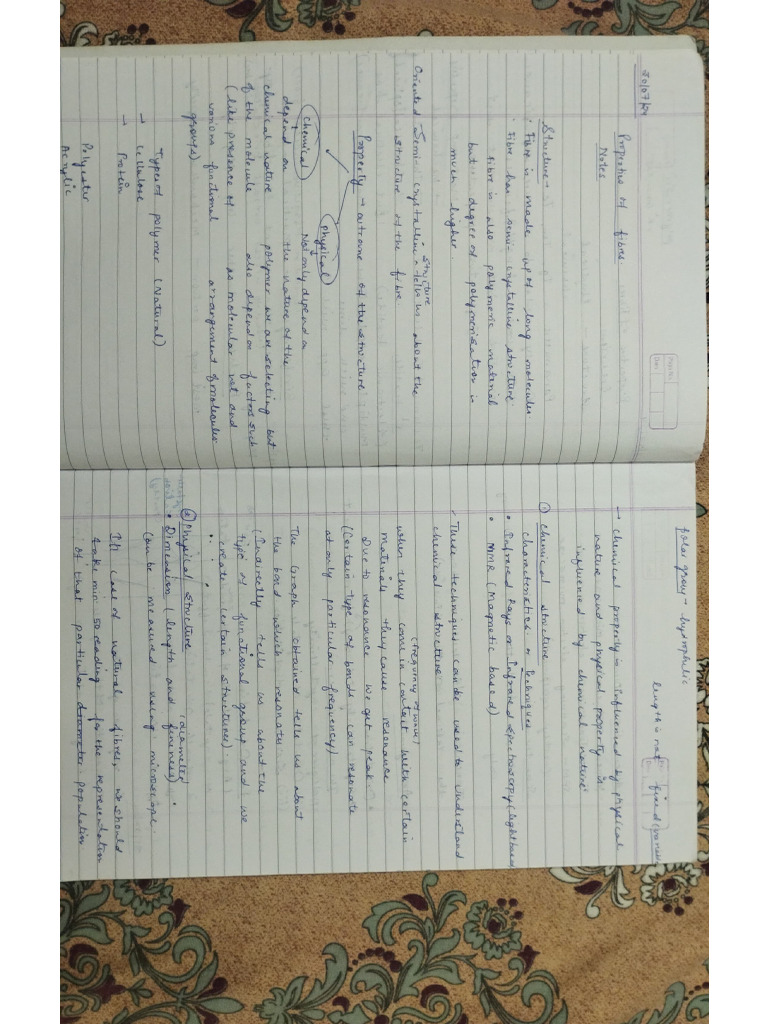 30/07/24
Properties of fibres
Notes
Structure →
• Fibre is made up of long molecules.
• Fibre has semi-crystalline structure.
fibre is also polymeric material
but degree of polymerisation is
much higher
Oriented Semi-crystalline structure → tells us about the
structure of the fibre
Property → outcome of the structure
Chemical
Physical
depend on
chemical nature
of the molecule
(like presence of
various functional
groups)
Not only depend on
the nature of the
polymer we are selecting but
also depend on factors such
as molecular wt and
arrangement of molecules
Types of polymer (Natural)
→ Cellulose
→ Protein
Polyester
Acrylic
Polar group → hydrophilic
length is not fixed
→ Chemical property is influenced by physical
nature and physical property is
influenced by chemical nature
① Chemical structure
characteristics or Techniques
• Infrared Rays or Infrared spectroscopy (light based
• NMR (Magnetic based)
These techniques can be used to understand
chemical structure.
(frequency of which)
when they come in contact with certain
materials they cause resonance
Due to resonance we get peak
(Certain type of bonds can resonate
at only particular frequency)
The Graph obtained tells us about
the bond which resonate
(Indirectly tells us about the
type of functional group and we
create certain structures).
② Physical structure
• Dimension (length and diameter fineness)
Can be measured using microscope.
In case of natural fibres, we should
take min 50 reading for the representation
of that particular diameter population